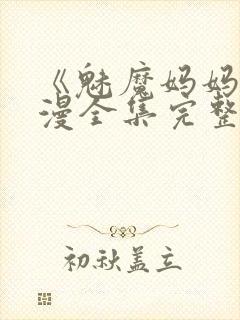 《魅魔妈妈
漫全集完整
初秋盖立